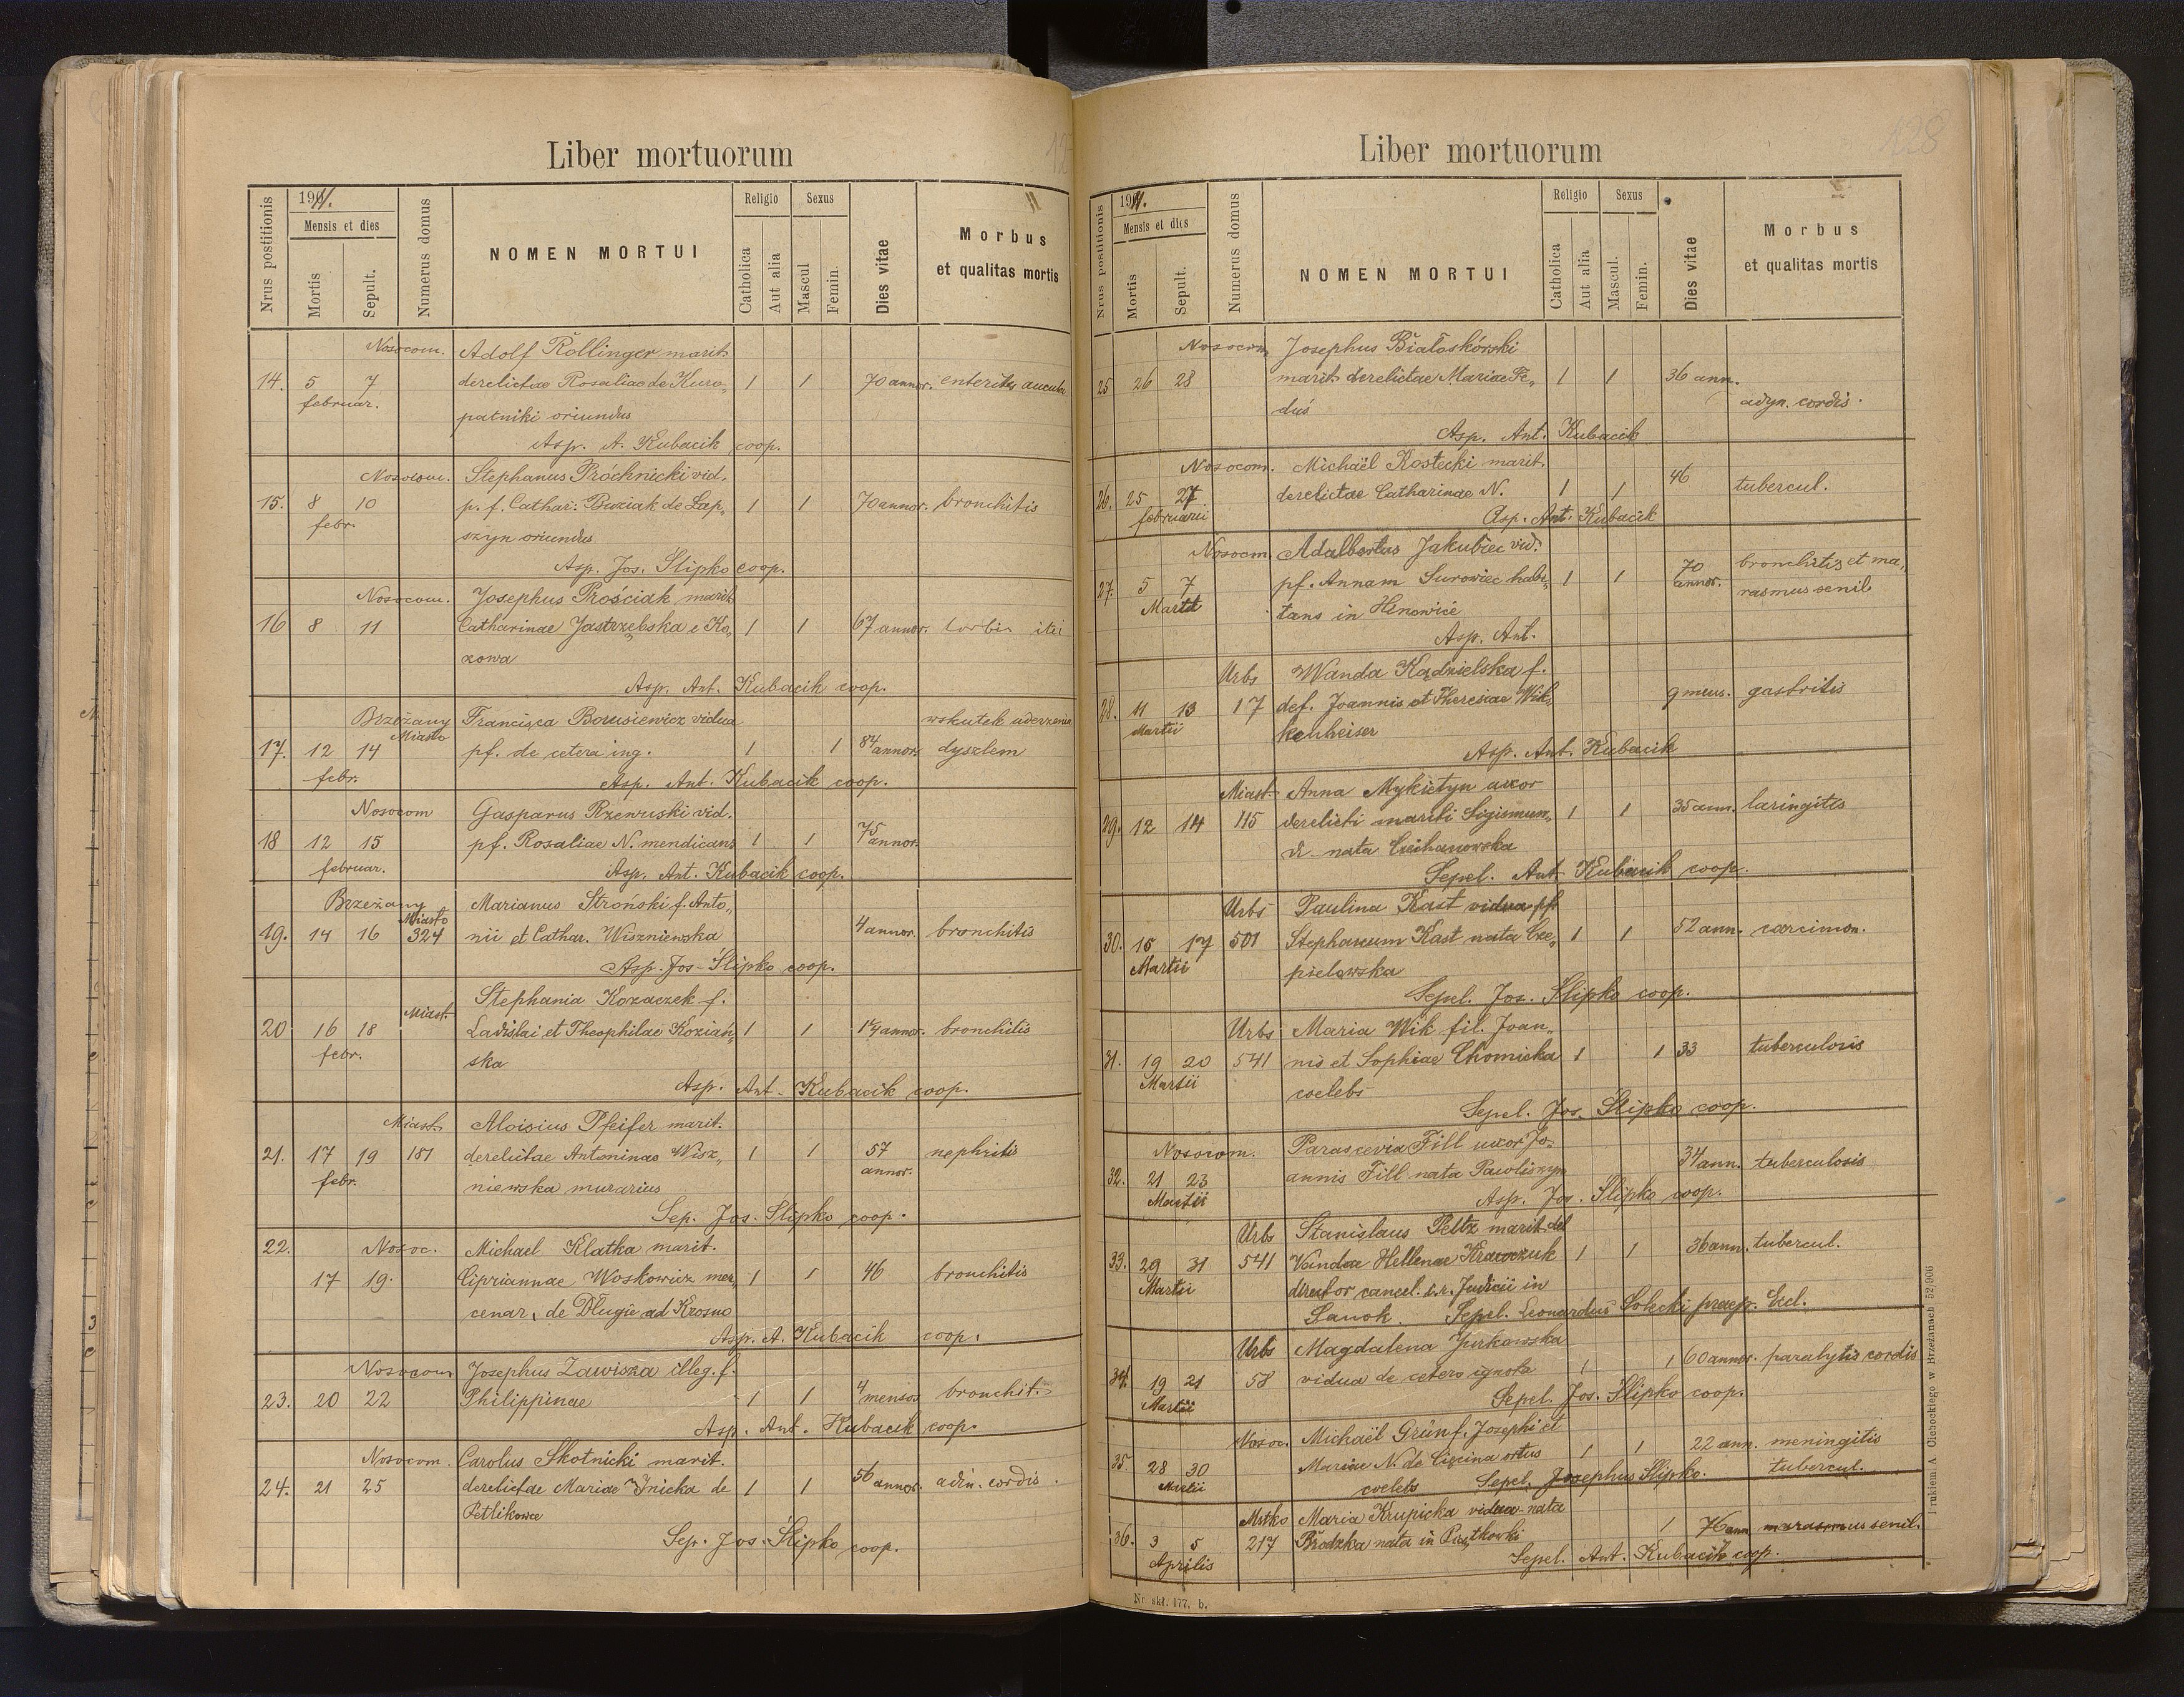 Liber mortuorum
Nrus postitionis
1911.
Mensis et dies
Mortis
Sepult.
Numerus domus
NOMEN MORTUI
Religio
Catholica
Aut alia
Sexus
Mascul
Femin.
Dies vitae
Morbus
et qualitas mortis
Nosocom. Adolf Röllinger marit.
14. 5 7 derelictae Rosaliae de Kuro- 1 1 70 annor. enteritis
februar. patniki oriundus
Asp. A. Kubacik coop.
Nosocom. Stephanus Próchnicki vid.
15. 8 10 p. f. Cathar. Buziak de Łap- 1 1 70 annor. bronchitis
febr. szyn oriundus
Asp. Jos. Ślipko coop.
Nosocom. Josephus Prościak marit.
16 8 11 Catharinae Jastrzębska e Ko- 1 1 67 annor.
zowa
Asp. Ant. Kubacik coop.
Brzeżany Francisca Borusiewicz vidua wskutek uderzenia
Miasto
17. 12 14 pf. de cetera ing. 1 1 84 annor. dyszlem
febr. Asp. Ant. Kubacik coop.
Nosocom Gasparus Rzewuski vid.
18 12 15 pf. Rosaliae N. mendicans 1 1 75 annor.
februar. Asp. Ant. Kubacik coop.
Brzeżany Marianus Stroński f. Anto-
Miasto
19. 14 16 324 nii et Cathar. Wiszniewska 4 annor. bronchitis
Asp. Jos. Ślipko coop.
Stephania Kozaczek f.
Miast.
20 16 18 Ladislai et Theophilae Koziań- 1 1 14 annor. bronchitis
febr. ska
Asp. Ant. Kubacik coop.
Miast. Aloisius Pfeifer marit.
21. 17 19 181 derelictae Antoninae Wisz- 1 1 57 annor. nephritis
febr. niewska murarius
Sep. Jos. Ślipko coop.
22. Nosoc. Michael Klatka marit.
17 19. Cipriannae Woskowicz mer- 1 1 46 bronchitis
cenar. de Długie ad Krosno
Asp. A. Kubacik coop.
Nosocom Josephus Zawisza illeg. f.
23. 20 22 Philippinae 1 1 4 menses bronchitis
Asp. Ant. Kubacik coop.
Nosocom. Carolus Skotnicki marit.
24. 21 25 derelictae Mariae Ynicka de 1 1 56 annor. adin. cordis.
Petlikowce
Sep. Jos. Ślipko coop.
128
Liber mortuorum
Nrus postitionis
1911.
Mensis et dies
Mortis
Sepult.
Numerus domus
NOMEN MORTUI
Religio
Catholica
Aut alia
Sexus
Mascul.
Femin.
Dies vitae
Morbus
et qualitas mortis
Nosocom Josephus Białoskórski
25 26 28 marit. derelictae Mariae Fe- 1 1 36 ann. adyn. cordis.
duś
Asp. Ant. Kubacik
Nosocom. Michaël Kostecki marit.
26. 25 27 derelictae Catharinae N. 1 1 46 tubercul.
februarii Asp. Ant. Kubacik
Nosocom. Adalbertus Jakubiec vid. bronchitis et ma-
27. 5 7 pf. Annam Surowiec habi- 1 1 70 annor. rasmus senil
Martii tans in Hinowice
Asp. Ant.
Urbs Wanda Kądzielska f.
28. 11 13 17 def. Joannis et Theresiae Wik- 9 mens. gastritis
Martii kenheiser
Asp. Ant. Kubacik
Miast. Anna Mykietyn uxor
29. 12 14 115 derelicti mariti Sigismun- 1 1 35 ann. laringitis
di nata Ciechanowska
Sepel. Ant. Kubacik coop.
Urbs Paulina Kast vidua pf.
30. 15 17 501 Stephanum Kast nata Cze- 1 1 52 ann. carcimon.
Martii pielowska
Sepel. Jos. Ślipko coop.
Urbs Maria Wik fil. Joan-
31. 19 20 541 nis et Sophiae Chomicka 1 1 33 tuberculosis
Martii coelebs
Sepel. Jos. Ślipko coop.
Nosocom. Parascevia Fill uxor Jo-
32. 21 23 annis Fill nata Pawliszyn 34 ann. tuberculosis
Martii Asp. Jos. Ślipko coop.
Urbs Stanislaus Peltz marit. del
33. 29 31 541 Vandae Hellenae Krawczuk 1 1 36 ann. tubercul.
Martii director cancel. c.r. Judicii in
Sanok. Sepel. Leonardus Solecki praep. Eccl.
Urbs Magdalena Jurkowska
34. 19 21 58 vidua de cetero ignota 1 1 60 annor. paralytis cordis
Martii Sepel. Jos. Ślipko coop.
Nosoc. Michaël Grün f. Josephi et
35. 28 30 Mariae N. de Cięcina ortus 1 1 22 ann. meningitis
Martii coelebs Sepel. Josephus Ślipko. tubercul.
Mstko Maria Krupicka vidua nata
36. 3 5 217 Brodzka nata in 1 76 ann marasmus senil.
Aprilis Sepel. Ant. Kubacik coop.
Nr skł. 177. b.
Drukiem A. Olebockiego w Brzeżanach 52/906